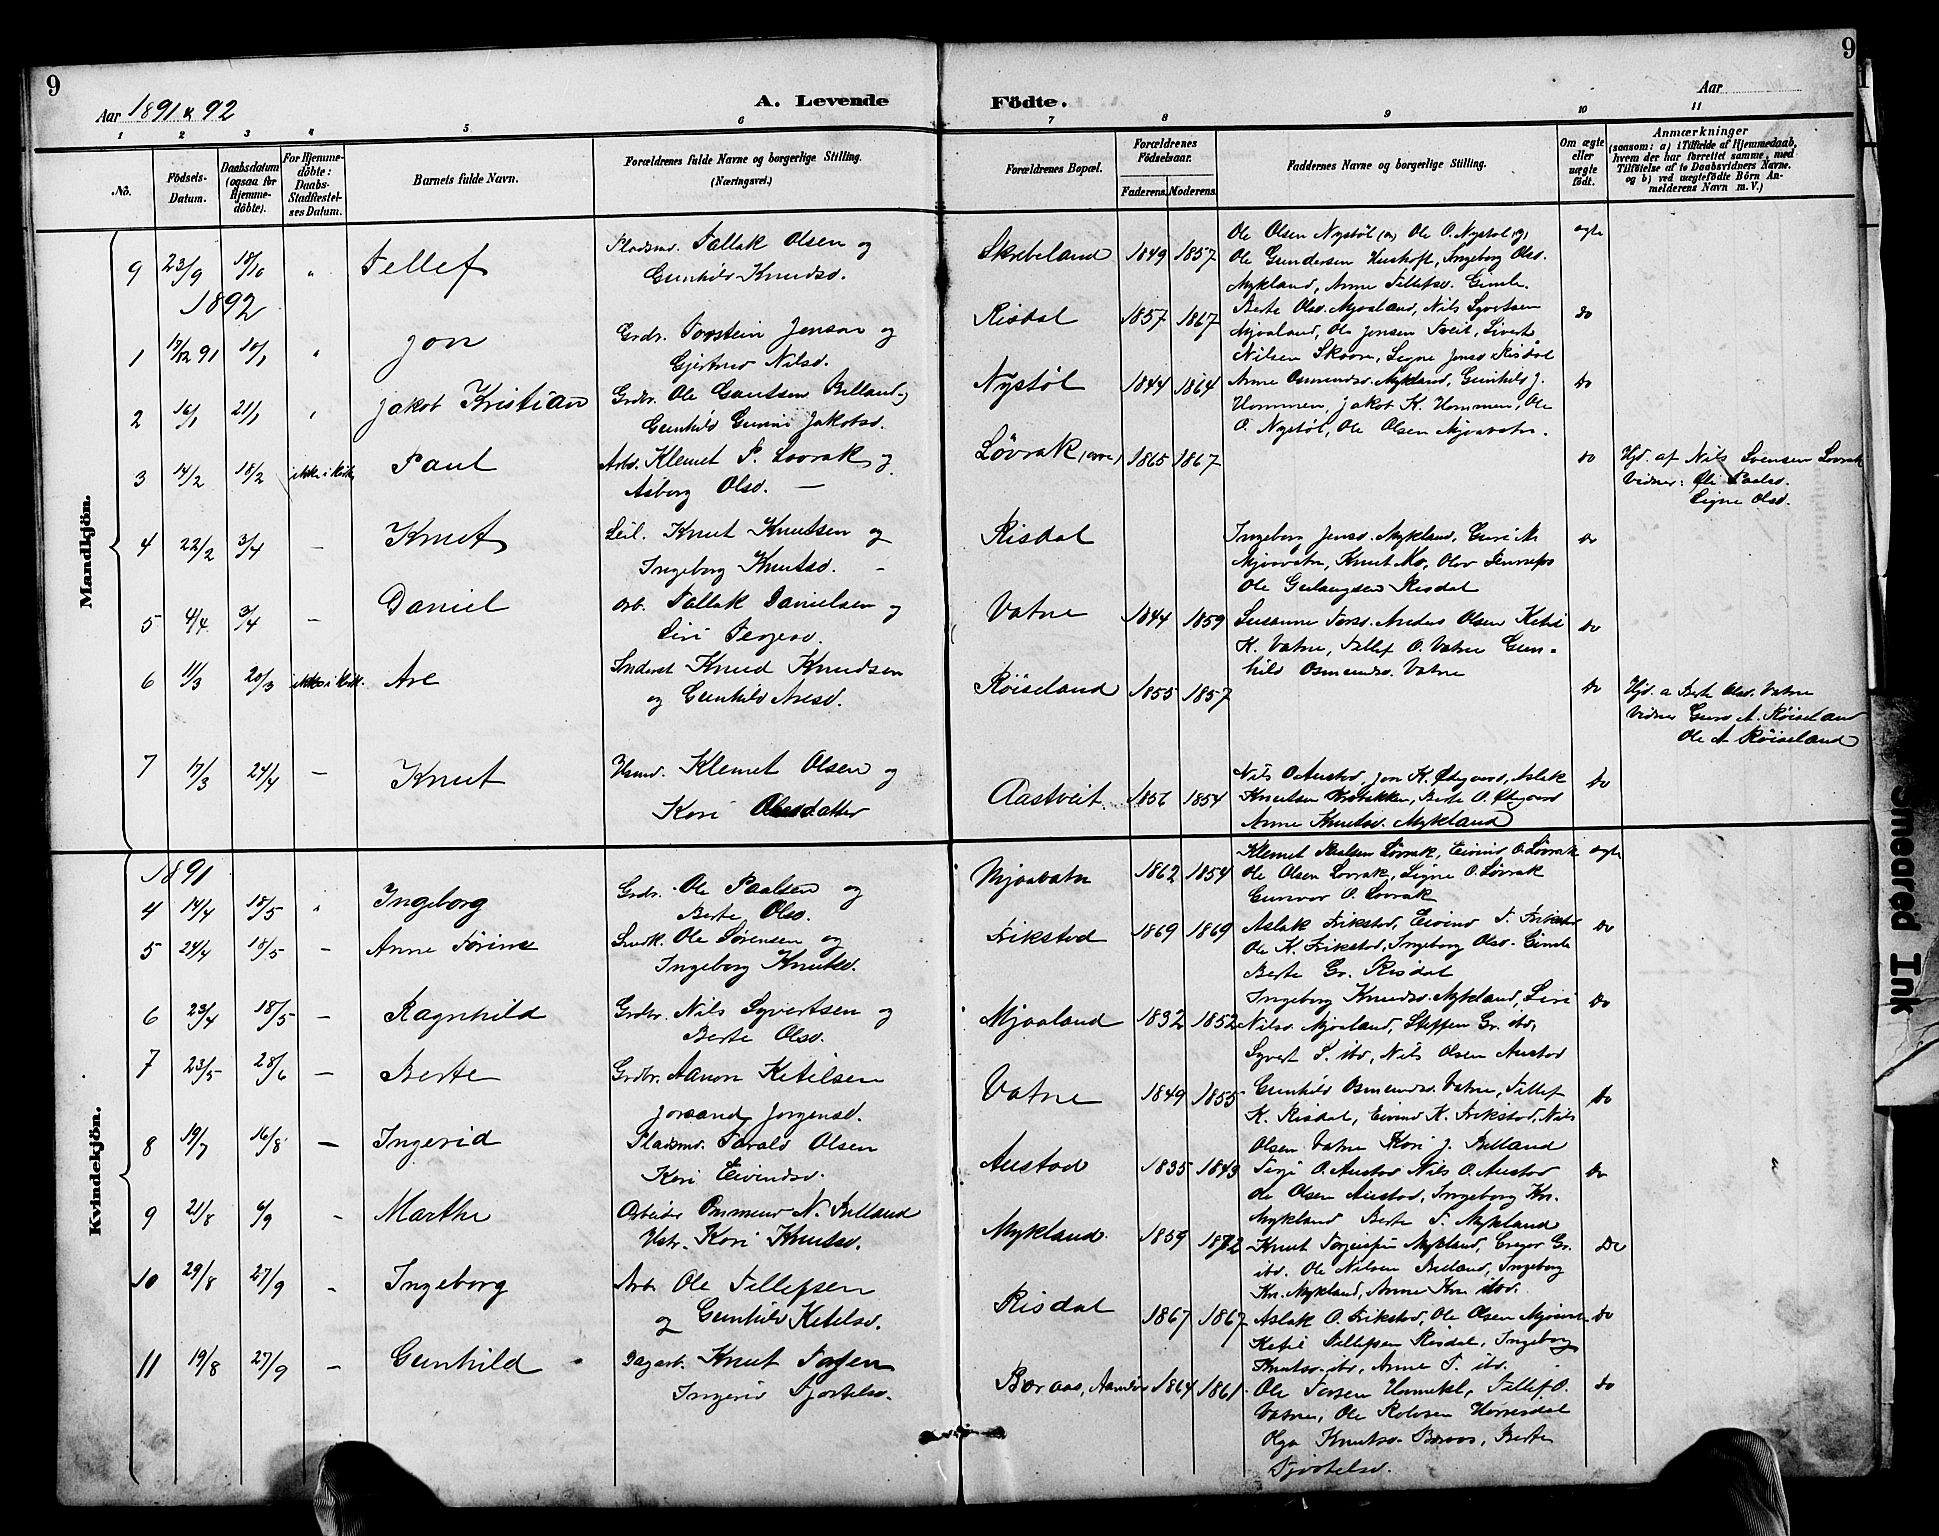 9
9
Aar 1891 & 92
A. Levende Födte.
Aar
1 2 3 4 5 6 7 8 9 10 11
No.
Födsels-Datum.
Daabsdatum (ogsaa for Hjemme-döbte).
For Hjemme-döbte: Daabs-Stadfæstel-ses Datum.
Barnets fulde Navn.
Forældrenes fulde Navne og borgerlige Stilling. (Næringsvei.)
Forældrenes Bopæl.
Forældrenes Födselsaar.
Faderens. Moderens.
Faddernes Navne og borgerlige Stilling.
Om ægte eller uægte födt.
Anmærkninger
(saasom: a) i Tilfælde af Hjemmedaab, hvem der har forrettet samme, med Tilföielse af to Daabsvidners Navne. og b) ved uægtefödte Börn An-melderens Navn m. V.)
Mandkjön.
9 23/9 18/10 " Tellef
Pladsmd. Tallak Olsen og
Gunhild Knudsd.
Skrebeland 1849 1857
Ole Olsen Nystøl (æ) Ole O. Nystøl (y)
Ole Gundersen Hushoft, Ingeborg Olsd.
Mykland, Anne Tellefsd. Gimle.
ægte
1892
1 17/12 91 10/1 " Jon
Grdr. Torstein Jensen og
Gjertrud Nilsd.
Risdal 1857 1867
Berte Olsd. Mjoaland, Nils Syvertsen
Mjoaland, Ole Jensen Tveit, Sivert
Nilsen Skaare, Signe Jensd. Risdal
do
2 16/1 21/1 " Jakob Kristian
Grdbr. Ole Gautsen Belland og
Gunhild Gunni Jakobsd.
Nystøl 1844 1864
Anne Osmundsd. Mykland, Gunhild J.
Hommen, Jakob K. Hommen, Ole
O. Nystøl, Ole Olsen Mjoavatn.
do
3 14/2 18/2 ikke i Kirke Paul
Arbd. Klemet P. Lovrak og
Asborg Olsd. —
Løvrak 1865 1867
do
Hjd. af Nils Svensen Lovrak
Vidner: Ole Paalsd.
Signe Olsd.
4 22/2 3/4 — Knut
Leil. Knut Knutsen og
Ingeborg Knutsd. —
Risdal
Ingeborg Jensd. Mykland, Guri M
Mjoavatn, Knut Mo, Olav
Ole Gulaugsen Risdal
do
5 4/4 3/4 — Daniel
Arb. Tallak Danielsen og
Siri Terjesd.
Vatne 1844 1859
Susanne Torsd. Anders Olsen Ketil
K. Vatne, Tellef O. Vatne Gun-
hild Osmundsd. Vatne
do
6 11/3 20/3 ikke i Kirk. Are
Inderst Knud Knudsen
og Gunhild Aresd.
Røiseland 1855 1857
do
Hjd. a Berte Olsd. Vatne
Vidner Guro A. Røiseland
Ole A Røiseland
7 17/3 24/4 — Knut
Husmd. Klemet Olsen og
Kari Olesdatter
Aastveit 1856 1854
Nils O Austad, Jon K. Ødegaard, Aslak
Knutsen, Berte O. Ødegaard
Anne Knutsd. Mykland
do
Kvindekjön.
1891
4 14/4 18/5 " Ingeborg
Grdr. Ole Paalsen og
Berte Olsd.
Mjoavatn 1862 1854
Klemet Paalsen Løvrak, Eivind O. Løvrak
Ole Olsen Lovrak, Signe O. Løvrak
Gunvor O. Lovrak
ægte
5 24/4 18/5 — Anne Tørine
Smdk. Ole Sørensen og
Ingeborg Knutsd.
Frikstad 1869 1869
Aslak Frikstad, Eivind T. Frikstad
Ole K. Frikstad, Ingeborg Olsd. Gimle
Berte Gr. Risdal
do
6 23/4 18/5 — Ragnhild
Grdbr. Nils Syvertsen og
Berte Olsd.
Mjoaland 1832 1852
Ingeborg Knudsd. Mykland, Siri
Nilsd. Mjoaland, Steffen Gr. ibd.,
Syvert S. ibd, Nils Olsen Austad
do
7 23/5 28/6 — Berte
Grdbr. Aanon Ketilsen
Jorand Jorgensd.
Vatne 1849 1855
Gunhild Osmundsd. Vatne, Tellef
K. Risdal, Eivind K. Frikstad, Nils
Olsen Vatne Kari J. Belland
do
8 19/7 16/8 — Ingerid
Pladsmd. Tarald Olsen
Kari Eivindsd.
Austad 1835 1843
Terje O. Austad Nils O. Austad
Ole Olsen Austad, Ingeborg Kn.
Mykland Berte T. Mykland
do
9 21/8 6/9 — Marthe
Arbeidr Ommund N. Belland
Hstr. Kari Knutsd.
Mykland. 1859 1872
Knut Torjussen Mykland, Gregor Gr.
ibd. Ole Nilsen Belland, Ingeborg
Kn. Mykland, Anne Kn. ibd.
do
10 29/8 27/9 — Ingeborg
Arb. Ole Tellefsen
og Gunhild Ketelsd.
Risdal 1867 1867
Aslak O. Frikstad, Ole Olsen
Ketil Tellefsen Risdal, Ingeborg
Knutsd. ibd, Anne T. ibd.
do
11 19/8 27/9 — Gunhild
Dagarb. Knut
Ingerid Tjostolsd.
Boraas, 1864 1861
Ole Torsen, Tellef O.
Vatne, Ole Rolvsen Herresdal
Olga Knutsd. Boraas, Berte
Tjostolsd.
do
Smeared Ink